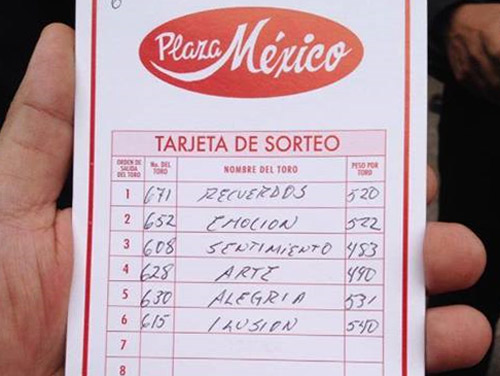 Plaza México
TARJETA DE SORTEO
ORDEN DE SALIDA DEL TORO No. DEL TORO NOMBRE DEL TORO PESO POR TORO
1 671 RECUERDOS 520
2 652 EMOCION 522
3 608 SENTIMIENTO 483
4 628 ARTE 490
5 630 ALEGRIA 531
6 615 ILUSION 540
7
8